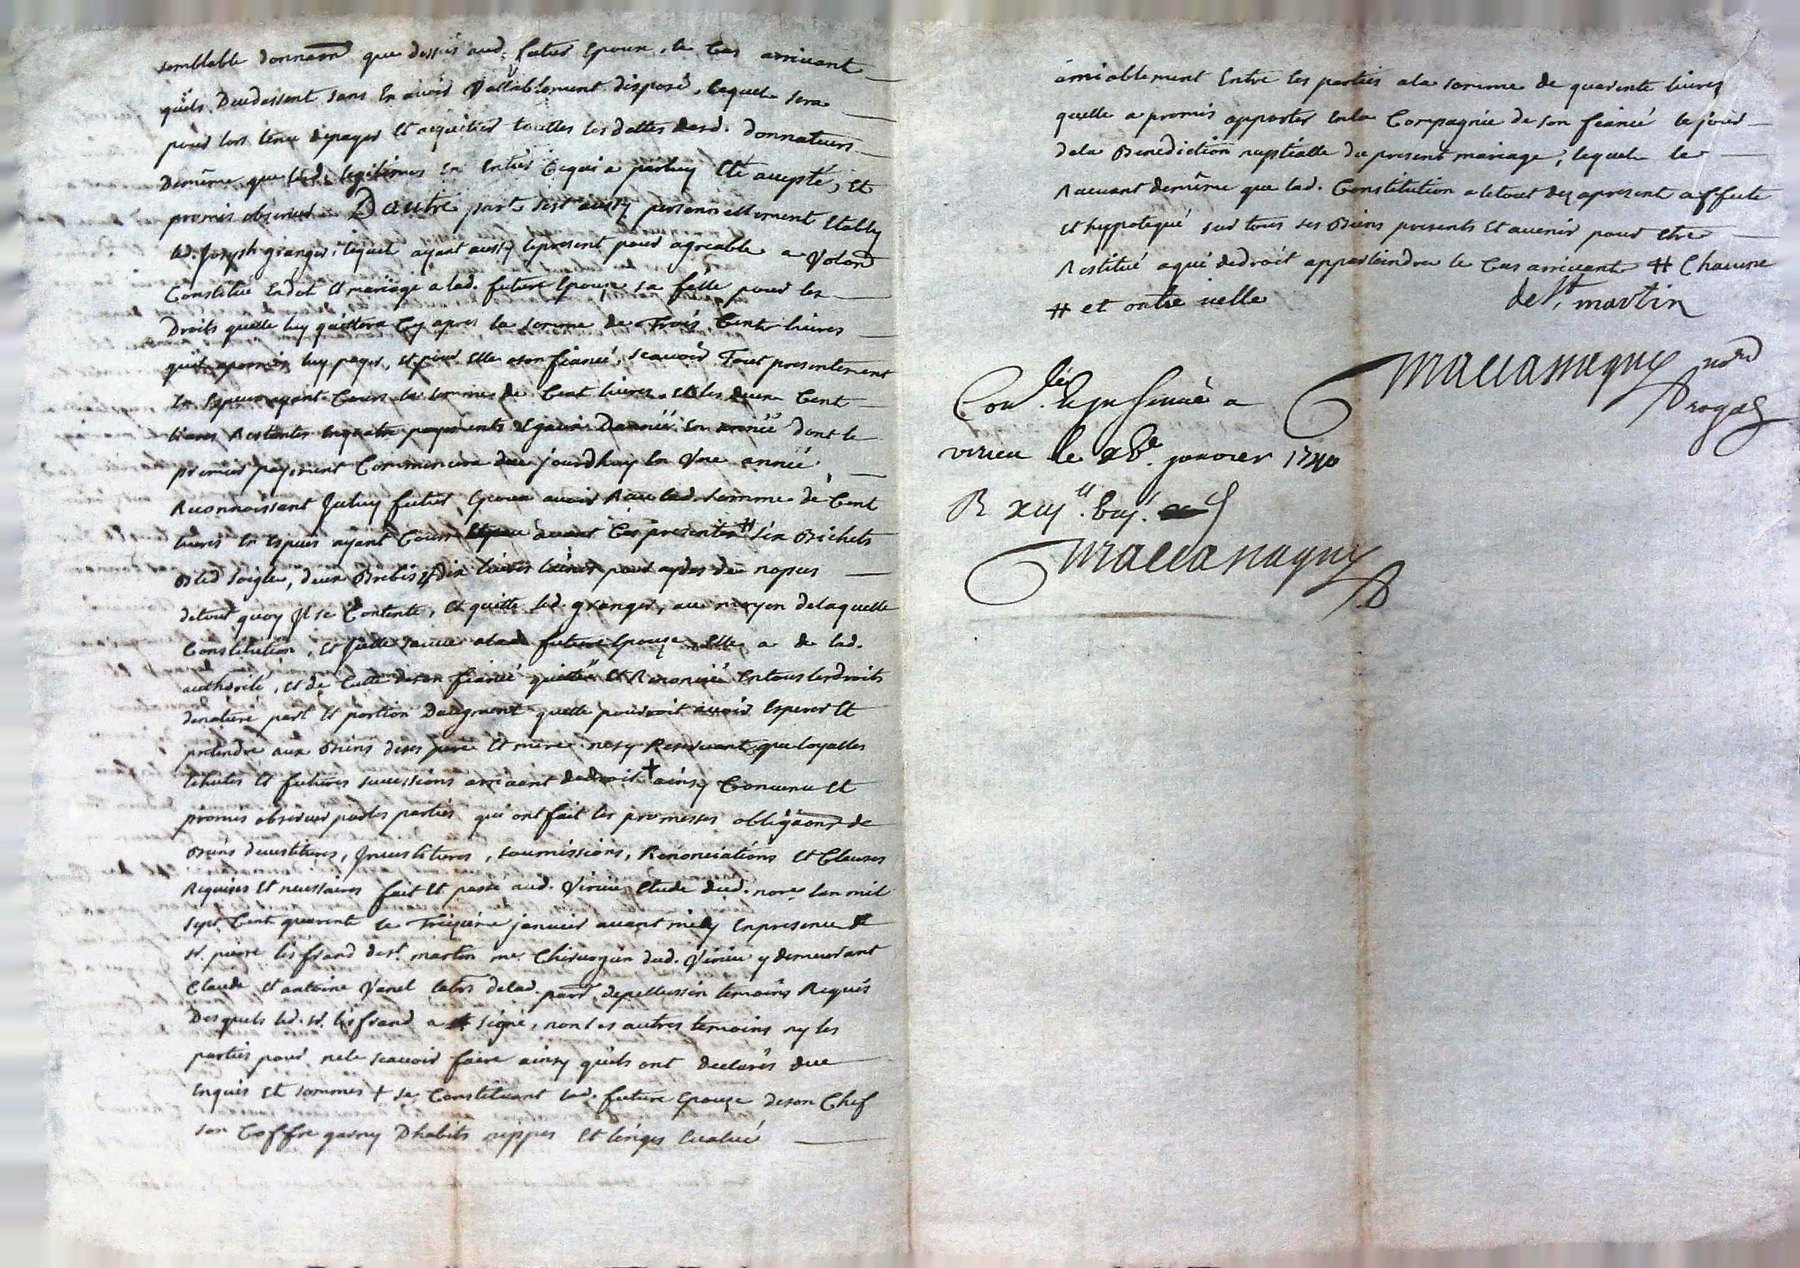 semblable donnaõn que dessus aud. futur Epoux, le Cas arrivant
quils Deceddassent sans En avoir Vallablement disposé, lequel sera
pour lors tenu de payer Et acquitter touttes les dettes desd. donnateurs
De même que lesd. legitimes En Entier Ce qui a par luy Eté accepté, Et
promis observer. D'autre part s'est aussy personnellement Etably
led. Joseph granger, lequel ayant aussy le present pour agreable a
Constitué En dot Et mariage a lad. future Epouze sa fille pour les
Droits quelle luy quittera Cy apres la somme de Trois Cent livres
quil a promis luy payer, Et pour Elle a son fiancé, scavoir Tout presentement
En Espece ayant Cours la somme de Cent livres, Et les deux Cent
livres Restantes En quatre payements Egaux D'année En année dont le
premier payement Commencera de ce jourdhuy En Une année,
Reconnoissant Iceluy futur Epoux avoir Receu lad. somme de Cent
livres En Especes ayant Cours avant Ces presentes # six Bichets
Bled soigle, deux Brebis Et dix livres pour ayder de nopces
de tout quoy Il se Contente, Et quitte led. granger, au moyen de laquelle
Constitution, Et Icelle sauve a lad. future Epouze, Elle a de lad.
authorité, Et de Celle de son fiancé quitté Et Renoncé En tous les droits
de nature part Et portion D'augment quelle pourroit avoir Esperer Et
pretendre aux Biens de ses pere Et mere, n'esy Reservant que loyalles
Echutes Et futures successions arrivant de droit + ainsy Convenu Et
promis observer par les parties qui ont fait les promesses obligãons de
Biens devestitures, Investitures, soumissions, Renonciations Et Clauses
Requises Et necessaires fait Et passé aud. Virieu Etude dud. nore. lan mil
sept Cent quarent le Treizieme janvier avant midy En presence de
sr. pierre lisfrand de st. martin me. Chirurgien dud. Virieu y demeurant
Claude Et antoine Vanel de lad. parr. de pellussin temoins Requis
Desquels led. sr. lisfrand a signé, non les autres temoins ny les
parties pour ne le scavoir faire ainsy quils ont declarés de ce
Enquis Et sommés + se Constituant lad. future Epouze de son Chef
son Coffre garny D'habits nippes Et linges Evalué
amiablement Entre les parties a la somme de quarente livres
quelle a promis apporter En la Compagnie de son fiancé le jour
de la Benediction nuptialle du present mariage, lequel le
Recevant de même que lad. Constitution a le tout dez apresent affecté
Et hypotequé sur tous ses Biens presents Et avenir pour Etre
Restitué a qui de droit appartiendra le Cas arrivant # Chaune
# et outre icelle de St. martin
Maccassagny nore
Royal
Conlé. Et Insinué a
virieu le xve. janvier 1740
R xiij ll. 
Maccassagny